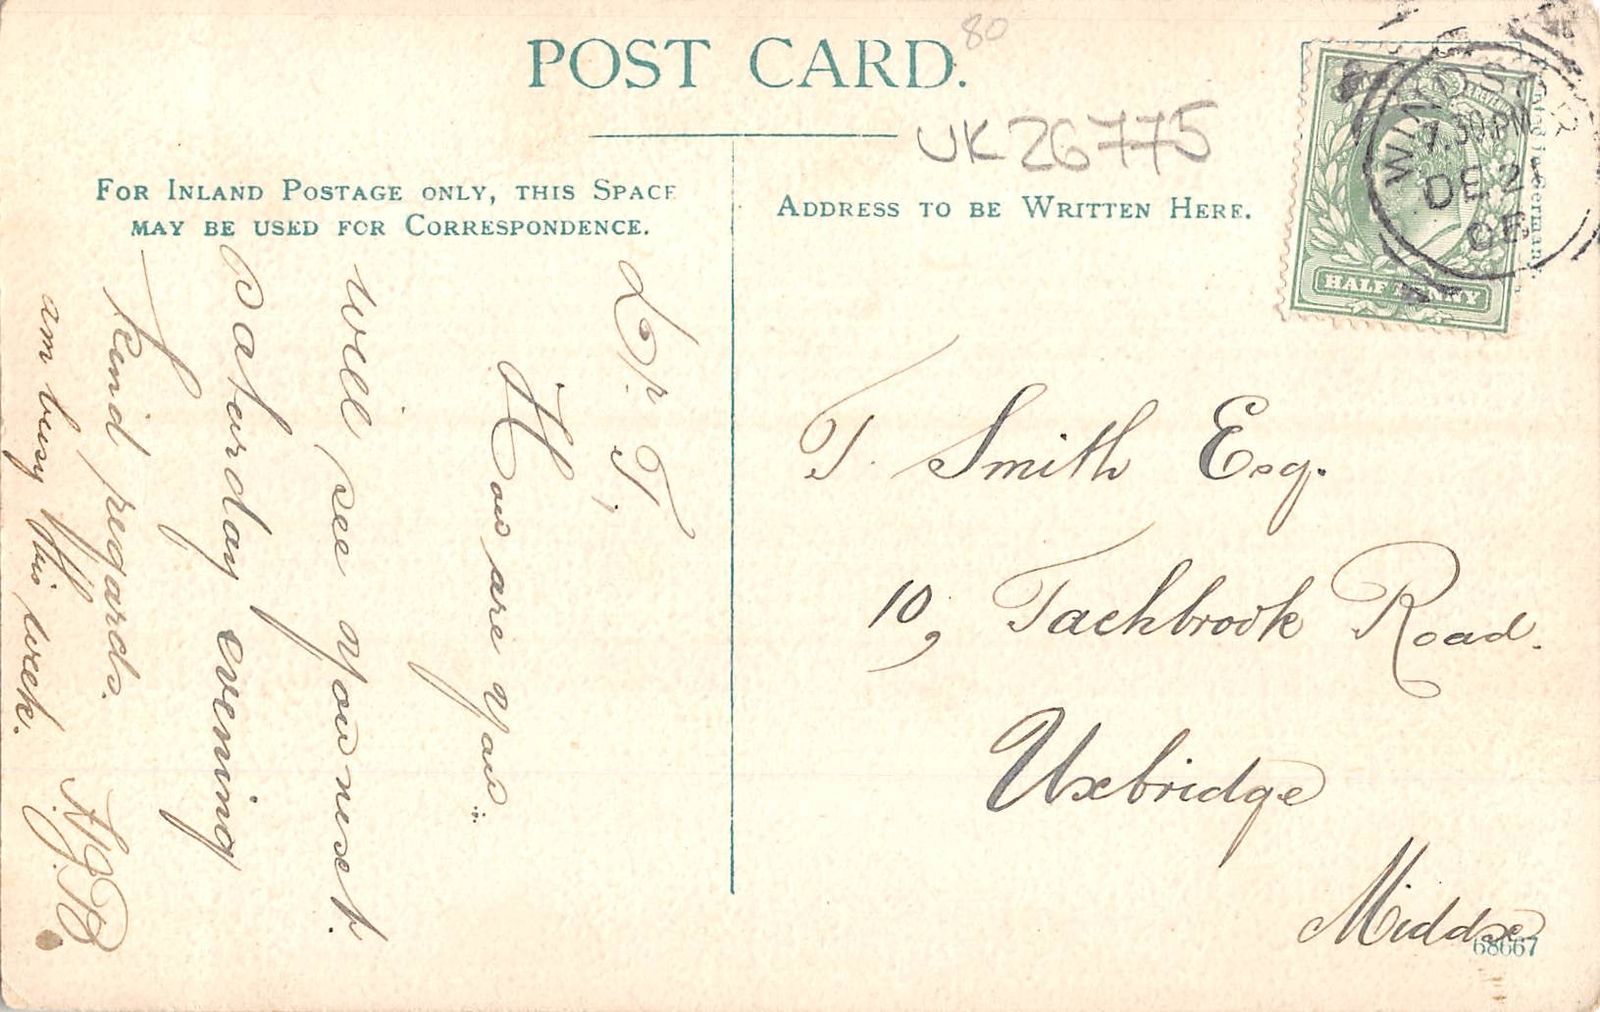 POST CARD.
80
UK26775
FOR INLAND POSTAGE ONLY, THIS SPACE
MAY BE USED FOR CORRESPONDENCE.
ADDRESS TO BE WRITTEN HERE.
WINDSOR
7.30 PM
DE 21
05
HALF PENNY
Dr. T,
How are you
will see you next
Saturday evening
Kind regards.
am busy this week.
T. Smith Esq.
10, Tachbrook Road.
Uxbridge
Middx
68667